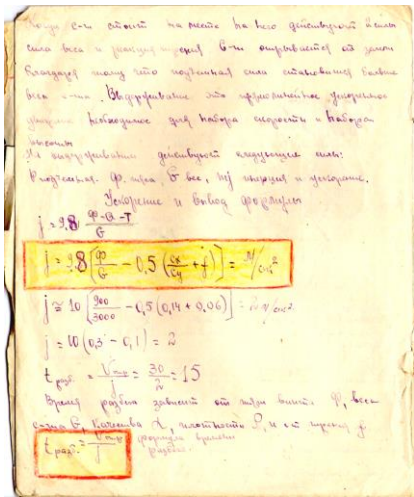 Когда с-т стоит на месте на него действуют 2 силы
сила веса и реакция С-т отрывается от земли
благодаря тому что подъемная сила становится больше
веса с-та. Выдерживание это прямолинейное ускоренное
необходимое для набора скорости и набора
высоты
На выдерживании действуют следующие силы:
R подъемная Ф тяга, G вес, инерция и ускорение.
Ускорение и вывод формулы
j = 9.8 Ф-Q-T/G
j = 9.8 [Ф/G - 0,5 (cx/cy + f)] = м/сек²
j = 10 [900/3000 - 0,5 (0,14 + 0,06)] = 2 м/сек²
j = 10 (0,3 - 0,1) = 2
t разб. = Vотр/j = 30/2 = 15
Время разбега зависит от тяги винта Ф, веса
G, качества K, плотности ρ, и от j.
t разб. = Vотр/j формула времени
разбега.